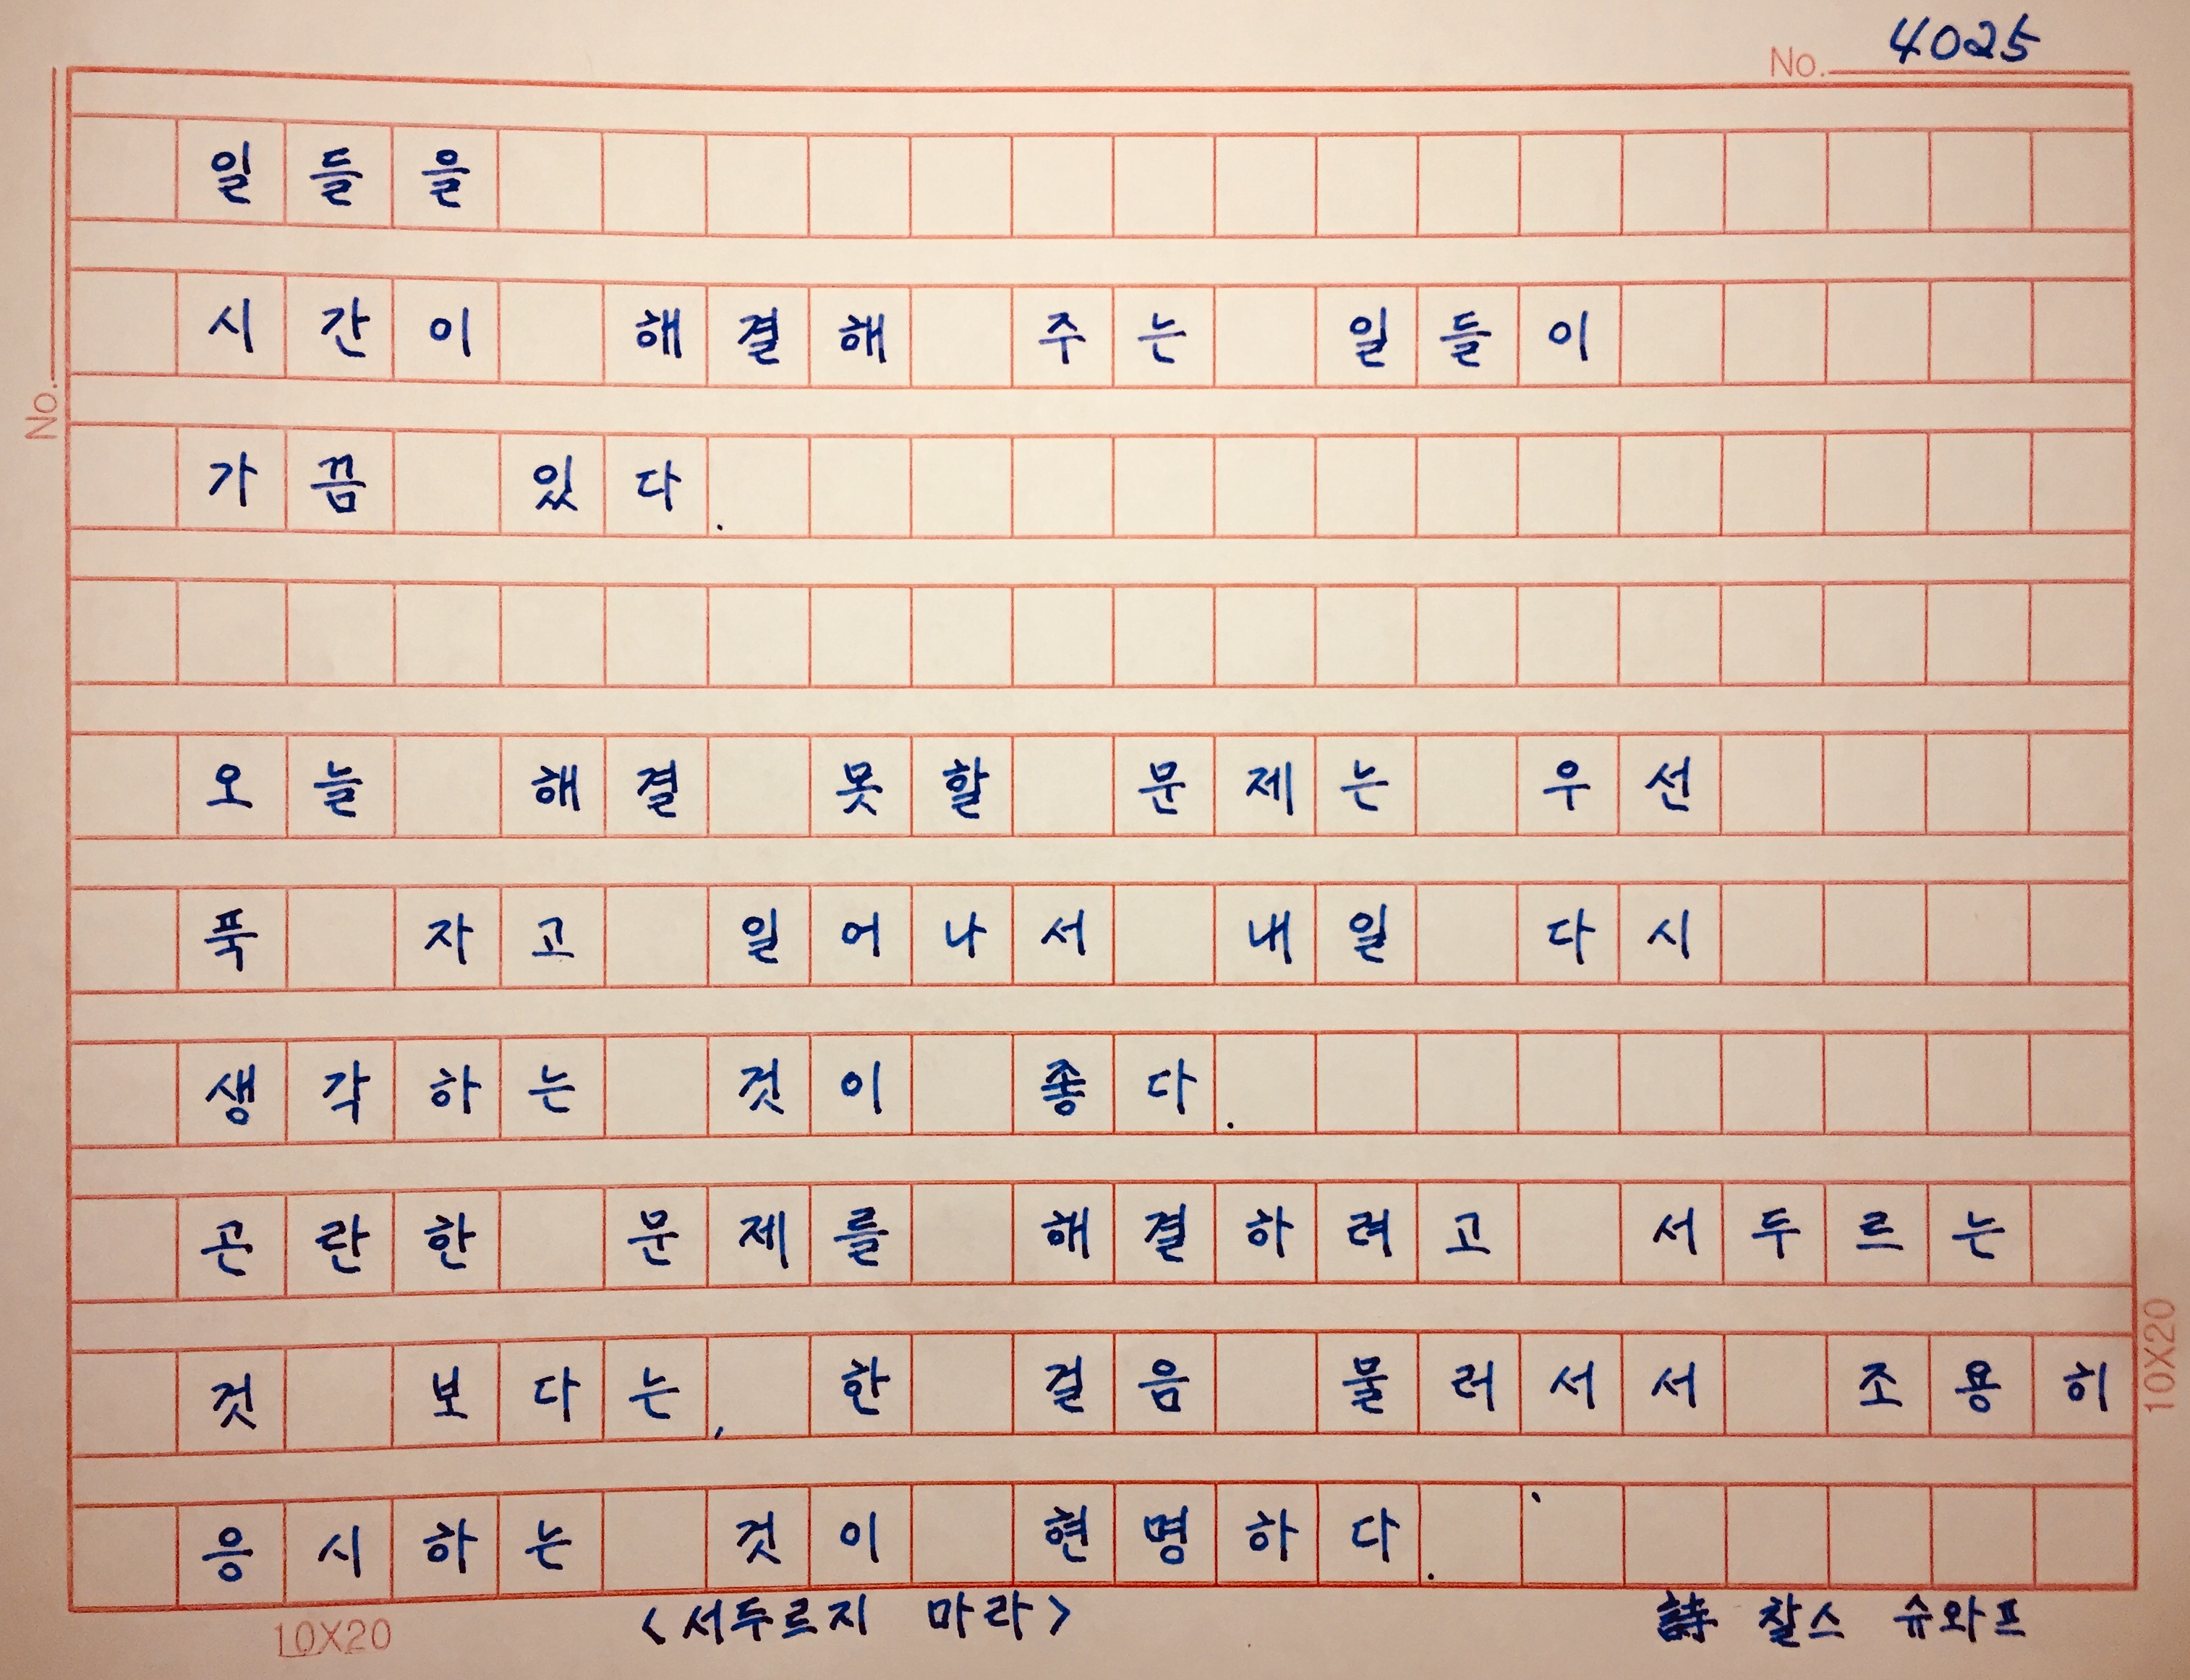 No. 4025
일들을
시간이 해결해 주는 일들이
가끔 있다.
오늘 해결 못할 문제는 우선
푹 자고 일어나서 내일 다시
생각하는 것이 좋다.
곤란한 문제를 해결하려고 서두르는
것 보다는, 한 걸음 물러서서 조용히
응시하는 것이 현명하다.
<서두르지 마라> 詩 찰스 슈와프
10X20
No.
10X20